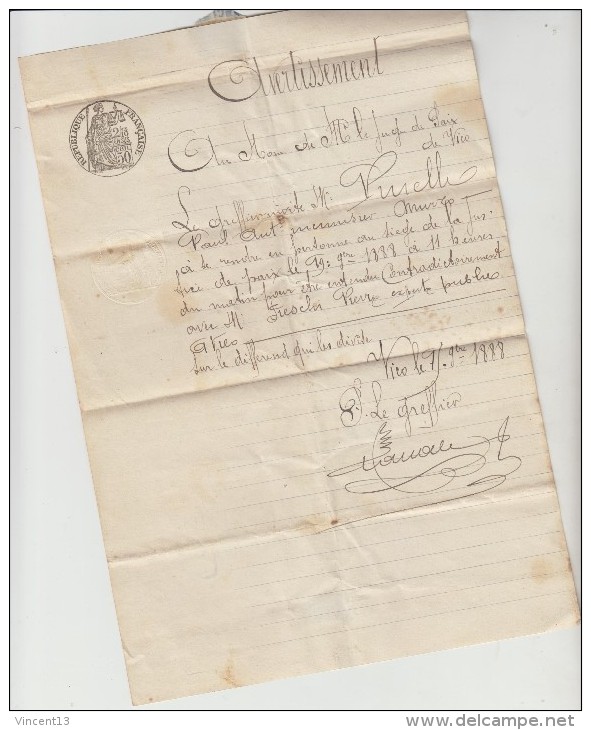 Avertissement
RÉPUBLIQUE FRANÇAISE
Au Nom de Mr le juge de Paix
de Vico
Le greffier invite Mr.
Paul Ant. menuisier Murzo
à se rendre en personne au siège de la jus-
tice de paix le 19. 9bre 1888 à 11 heures
du matin pour être entendu Contradictoirement
avec M. expert public
à Vico
sur le différend qui les divise
Vico le 9bre 1888
P. Le Greffier
Vincent13
delcampe.net